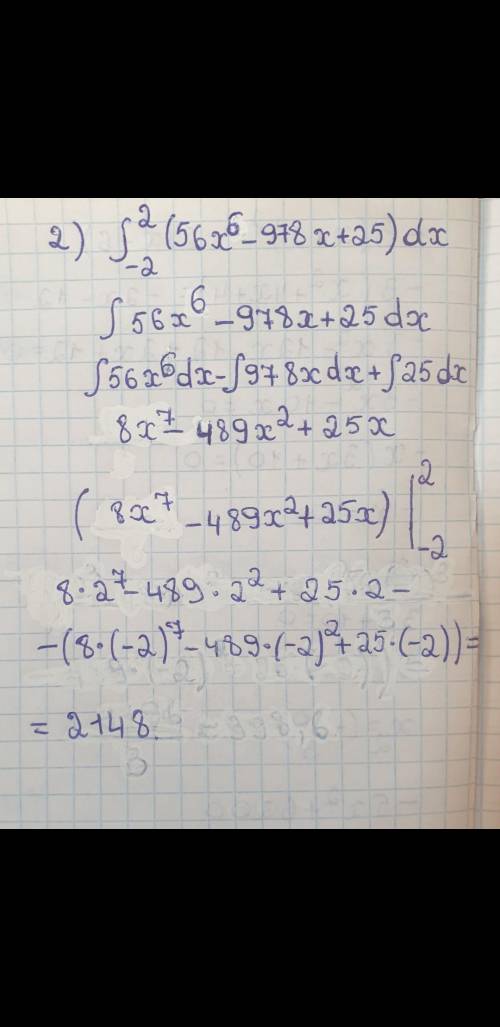 2) ∫₋₂² (56x⁶ - 978x + 25) dx
∫ 56x⁶ - 978x + 25 dx
∫56x⁶dx - ∫978x dx + ∫25 dx
8x⁷ - 489x² + 25x
( 8x⁷ - 489x² + 25x) |₋₂²
8·2⁷ - 489·2² + 25·2 -
-(8·(-2)⁷ - 489·(-2)² + 25·(-2)) =
= 2148.